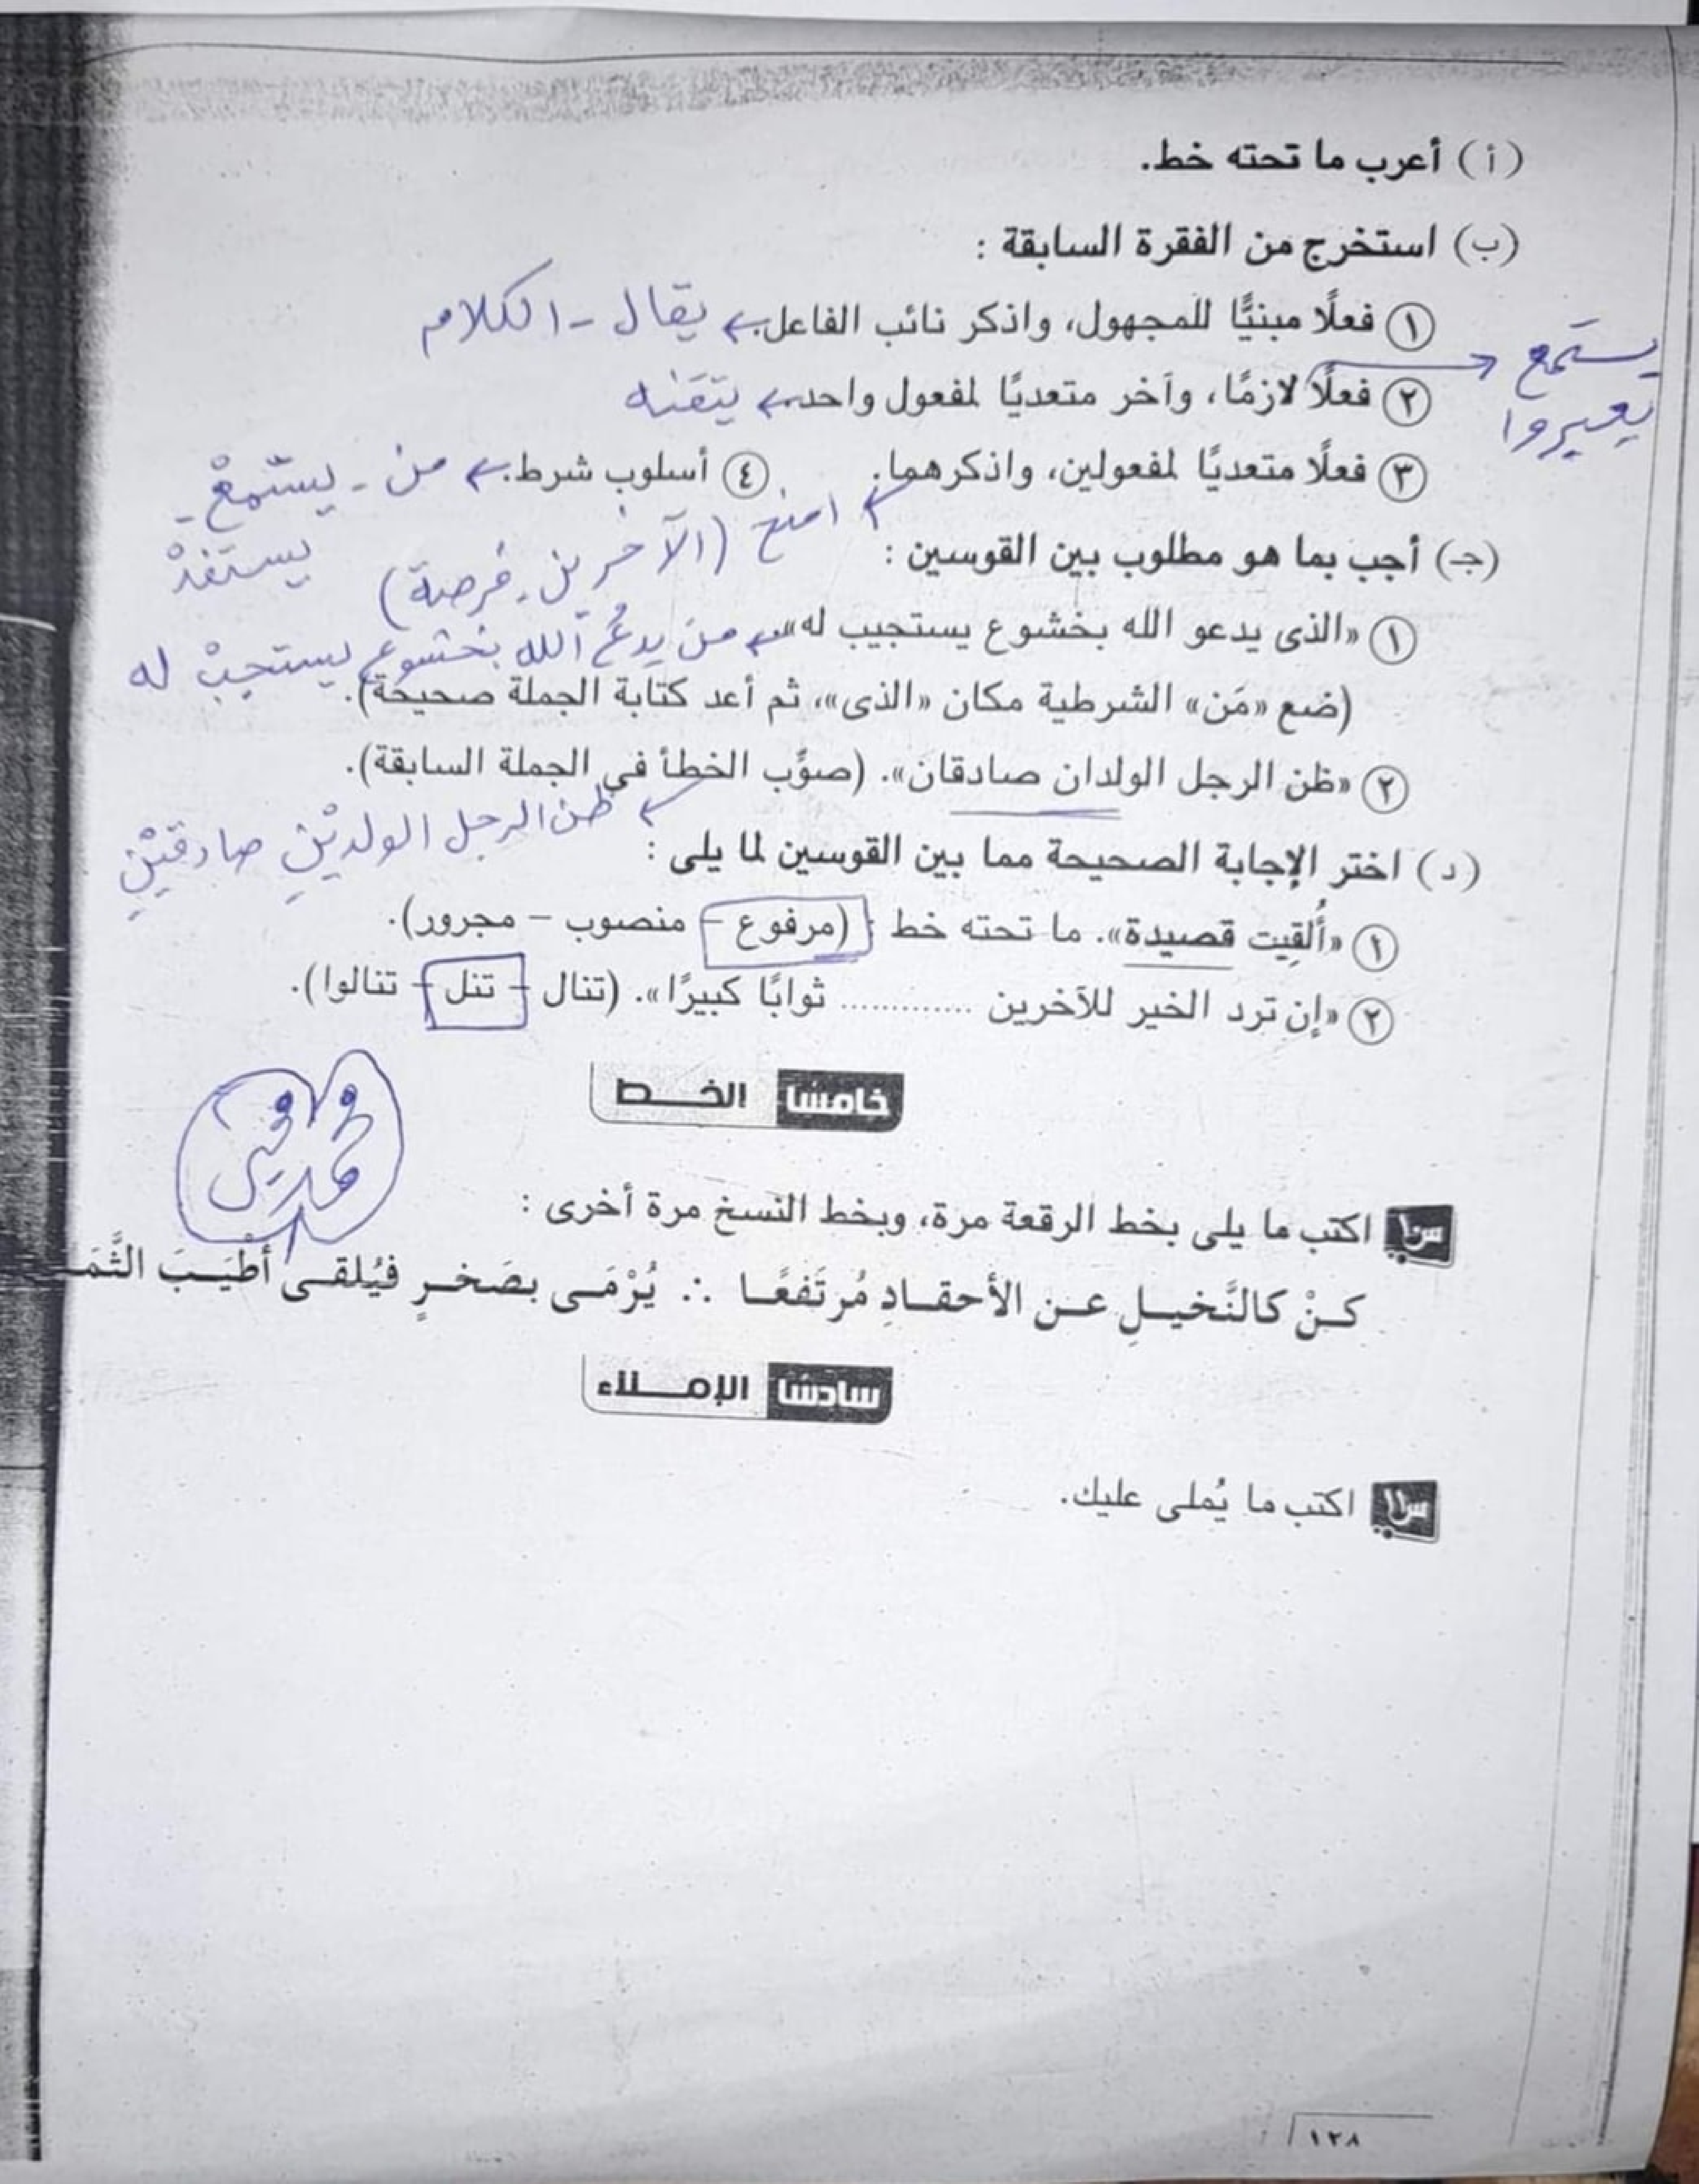 (أ) أعرب ما تحته خط.
(ب) استخرج من الفقرة السابقة :
١ فعلًا مبنيًّا للمجهول، واذكر نائب الفاعل. ← يقال - الكلام
٢ فعلًا لازمًا، وآخر متعديًا لمفعول واحد. ← يتقنه
يستمع
يعيروا
٣ فعلًا متعديًا لمفعولين، واذكرهما. ٤ أسلوب شرط. ← من - يستمعْ -
يستفدْ
← امنح (الآخرين - فرصة)
(جـ) أجب بما هو مطلوب بين القوسين :
١ «الذى يدعو الله بخشوع يستجيب له». ← من يدعُ الله بخشوع يستجبْ له
(ضع «مَن» الشرطية مكان «الذى»، ثم أعد كتابة الجملة صحيحة).
٢ «ظن الرجل الولدان صادقان». (صوِّب الخطأ فى الجملة السابقة).
← ظن الرجل الولديْنِ صادقيْنِ
(د) اختر الإجابة الصحيحة مما بين القوسين لما يلى :
١ «أُلقِيت قصيدة». ما تحته خط : (مرفوع – منصوب – مجرور).
٢ «إن ترد الخير للآخرين ............ ثوابًا كبيرًا». (تنال – تنل – تنالوا).
خامسًا الخــط
محمد
س١٠ اكتب ما يلى بخط الرقعة مرة، وبخط النسخ مرة أخرى :
كـنْ كالنَّخيـلِ عـن الأحقـادِ مُرتَفعًـا ∴ يُرْمَـى بصَخـرٍ فيُلقـى أطْيَـبَ الثَّمَـ
سادسًا الإمـلاء
س١١ اكتب ما يُملى عليك.
١٢٨